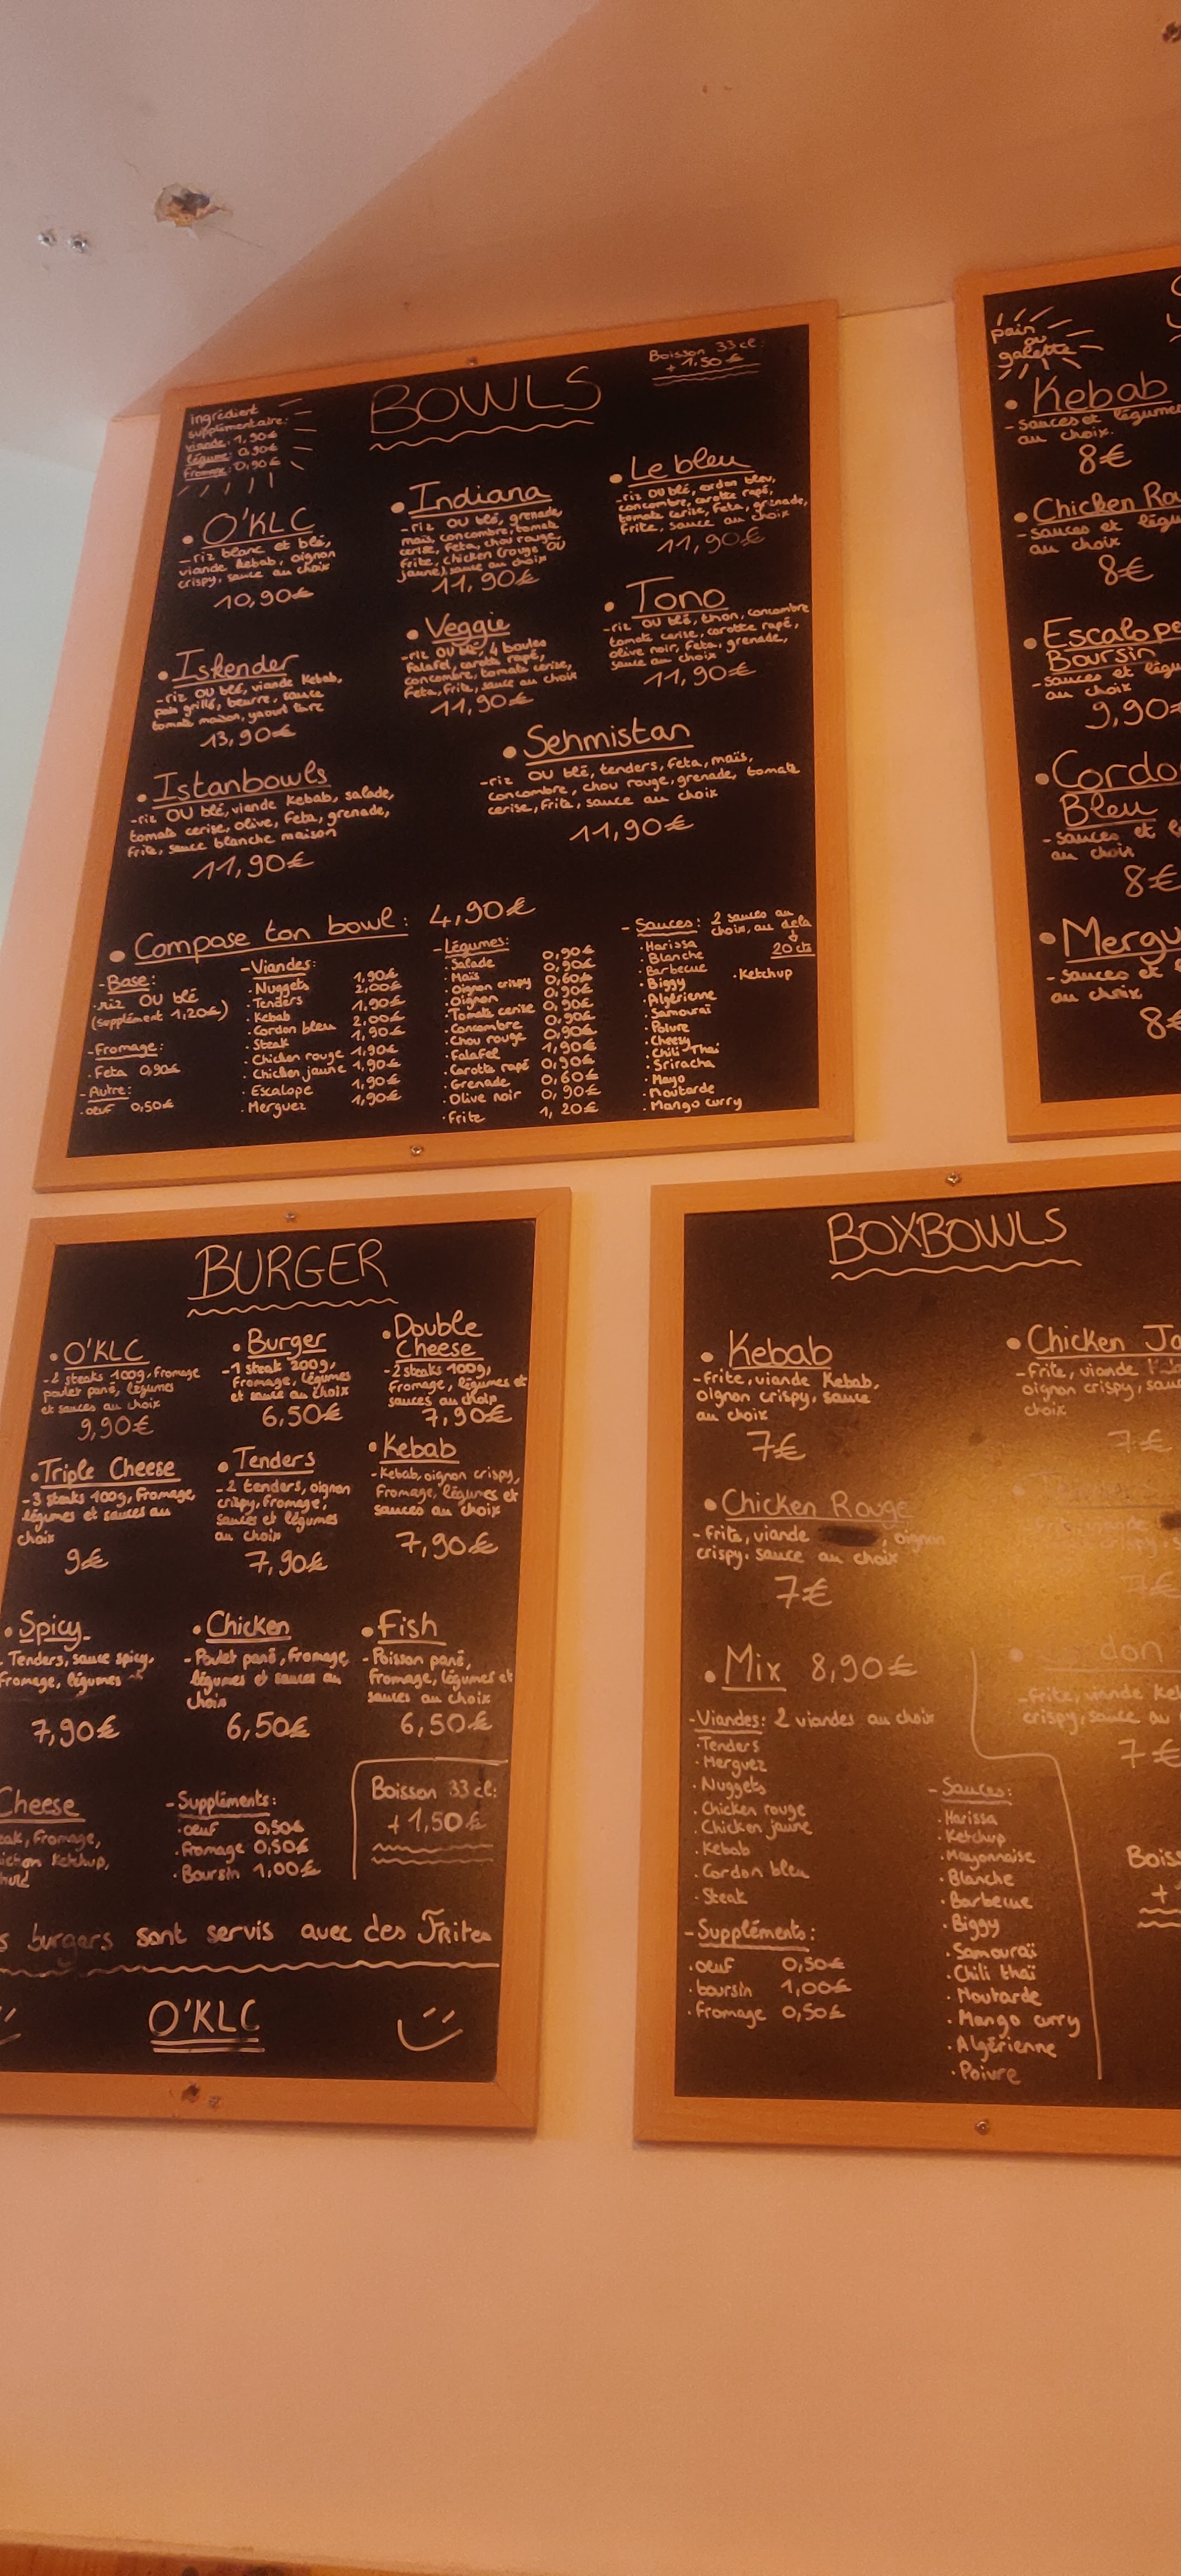 BOWLS
Boisson 33 cl:
+ 1,50€
ingrédient
supplémentaire:
viande: 1,90€
légume: 0,90€
fromage: 0,90€
• O'KLC
-riz blanc et blé,
viande kebab, oignon
crispy, sauce au choix
10,90€
• Iskender
-riz OU blé, viande Kebab,
pain grillé, beurre, sauce
tomate maison, yaourt
13,90€
• Istanbowls
-riz OU blé, viande Kebab, salade,
tomate cerise, olive, Feta, grenade,
Frite, sauce blanche maison
11,90€
• Indiana
-riz OU blé, grenade,
maïs concombre, tomate
cerise, Feta, chou rouge,
Frite, chicken (rouge OU
jaune) sauce au choix
11,90€
• Veggie
-riz OU blé, 4 boules
Falafel, carotte rapé,
concombre, tomate cerise,
Feta, Frite, sauce au choix
11,90€
• Le bleu
-riz OU blé, cordon bleu,
concombre, carotte rapé,
tomate cerise, Feta, grenade,
Frite, sauce au choix
11,90€
• Tono
-riz OU blé, thon, concombre
tomate cerise, carotte rapé,
olive noir, Feta, grenade,
sauce au choix
11,90€
• Sehmistan
-riz OU blé, tenders, Feta, maïs,
concombre, chou rouge, grenade, tomate
cerise, Frite, sauce au choix
11,90€
• Compose ton bowl: 4,90€
-Base:
·riz OU blé
(supplément 1,20€)
-Fromage:
·Feta 0,90€
-Autre:
·oeuf 0,50€
-Viandes:
·Nuggets 1,90€
·Tenders 2,00€
·Kebab 1,90€
·Cordon bleu 2,00€
·Steak 1,90€
·Chicken rouge 1,90€
·Chicken jaune 1,90€
·Escalope 1,90€
·Merguez 1,90€
-Légumes:
·Salade 0,90€
·Maïs 0,90€
·Oignon crispy 0,60€
·Oignon 0,90€
·Tomate cerise 0,90€
·Concombre 0,90€
·Chou rouge 0,90€
·Falafel 1,90€
·Carotte rapé 0,90€
·Grenade 0,60€
·Olive noir 0,90€
·Frite 1,20€
-Sauces: 2 sauces au
choix, au delà
20 cts
·Harissa
·Blanche
·Barbecue
·Biggy
·Algérienne
·Samouraï
·Poivre
·Cheesy
·Chili Thaï
·Sriracha
·Mayo
·Moutarde
·Mango curry
·Ketchup
pain
ou
galette
• Kebab
-sauces et légumes
au choix.
8€
• Chicken
-sauces et
au choix
8€
• Escalope
Boursin
-sauces et
au choix
9,90€
Bleu
-sauces et
au choix
8€
-sauces et
au choix
BURGER
• O'KLC
-2 steaks 100g, Fromage
poulet pané, légumes
et sauces au choix
9,90€
• Burger
-1 steak 200g,
Fromage, légumes
et sauce au choix
6,50€
• Double
Cheese
-2 steaks 100g,
Fromage, légumes et
sauces au choix
7,90€
• Triple Cheese
-3 steaks 100g, Fromage,
légumes et sauces au
choix
9€
• Tenders
-2 tenders, oignon
crispy, Fromage,
sauces et légumes
au choix
7,90€
• Kebab
-Kebab, oignon crispy,
Fromage, légumes et
sauces au choix
7,90€
• Spicy
Tenders, sauce spicy,
Fromage, légumes
7,90€
• Chicken
-Poulet pané, Fromage,
légumes et sauces au
choix
6,50€
• Fish
-Poisson pané,
Fromage, légumes et
sauces au choix
6,50€
Cheese
Fromage,
Ketchup,
-Suppléments:
·oeuf 0,50€
·Fromage 0,50€
·Boursin 1,00€
Boisson 33 cl:
+ 1,50€
burgers sont servis avec des Frites
O'KLC
BOXBOWLS
• Kebab
-Frite, viande Kebab,
oignon crispy, sauce
au choix
7€
• Chicken
-Frite, viande
oignon crispy,
choix
7€
• Chicken Rouge
-Frite, viande , oignon
crispy, sauce au choix
7€
7€
• Mix 8,90€
-Viandes: 2 viandes au choix
·Tenders
·Merguez
·Nuggets
·Chicken rouge
·Chicken jaune
·Kebab
·Cordon bleu
·Steak
-Suppléments:
·oeuf 0,50€
·boursin 1,00€
·Fromage 0,50€
-Sauces:
·Harissa
·Ketchup
·Mayonnaise
·Blanche
·Barbecue
·Biggy
·Samouraï
·Chili thaï
·Moutarde
·Mango curry
·Algérienne
·Poivre
-Frite, viande
crispy, sauce au
7€